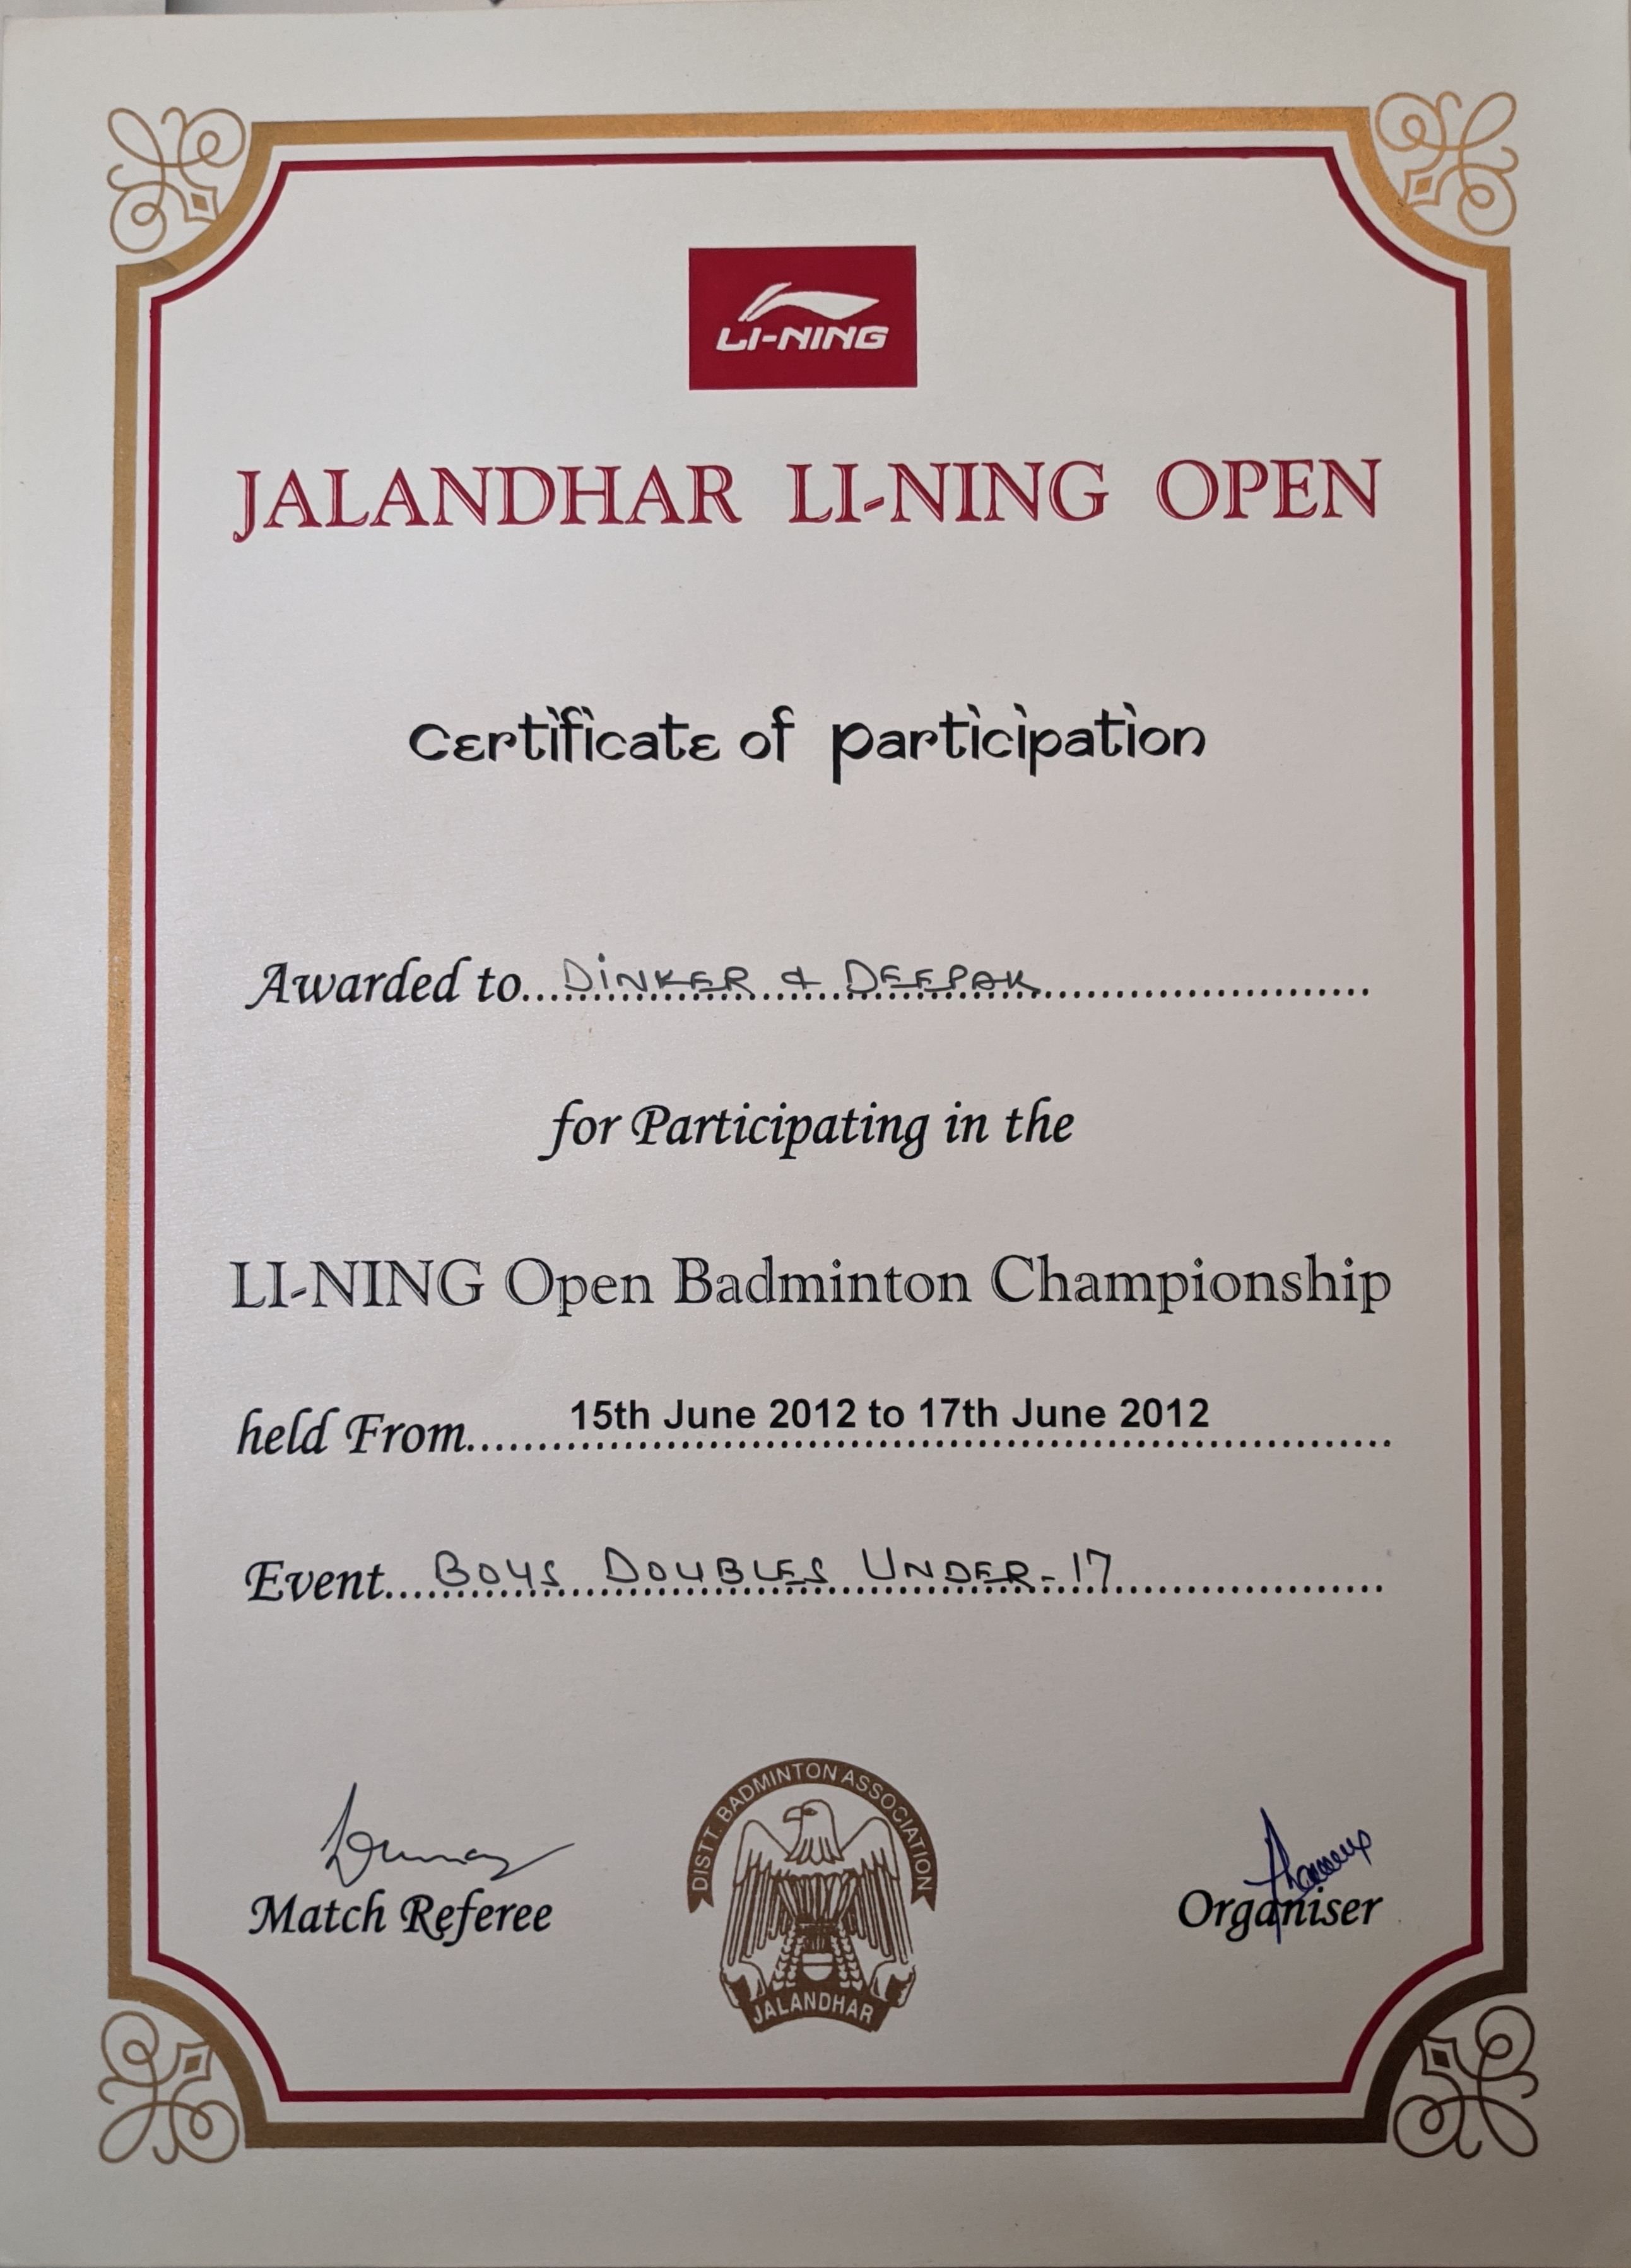 LI-NING
JALANDHAR LI-NING OPEN
Certificate of participation
Awarded to... DINKER & DEEPAK
for Participating in the
LI-NING Open Badminton Championship
held From... 15th June 2012 to 17th June 2012
Event... BOYS DOUBLES UNDER-17
DISTT. BADMINTON ASSOCIATION
JALANDHAR
Match Referee
Organiser